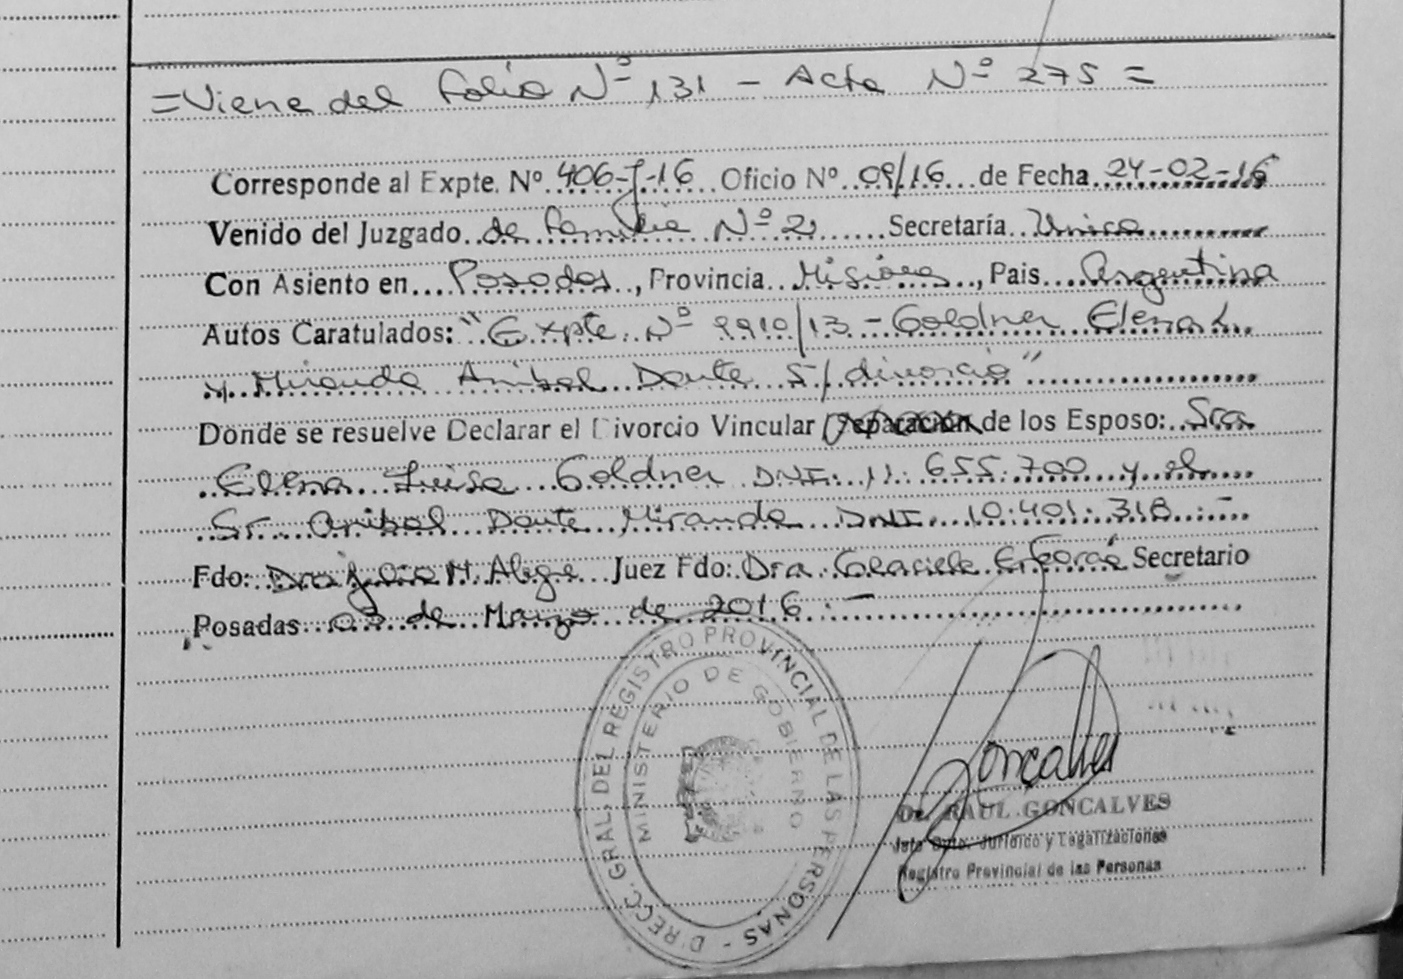 =Viene del folio Nº 131 - Acta Nº 275=
Corresponde al Expte. Nº 406-J-16 Oficio Nº 09/16 de Fecha 24-02-16
Venido del Juzgado de Familia Nº 2 Secretaría Unica
Con Asiento en Posadas, Provincia Misiones, Pais Argentina
Autos Caratulados: "Expte. Nº 9910/13 - Goldner Elena L.
y Miranda Anibal Dante S/divorcio"
Donde se resuelve Declarar el Divorcio Vincular de los Esposo: Sra
Elena Luisa Goldner DNI. 11.655.700 y el
Sr. Anibal Dante Miranda DNI. 10.401.318.-
Fdo: Juez Fdo: Dra. Graciela Secretario
Posadas 03 de Marzo de 2016.-
DIRECC. GRAL. DEL REGISTRO PROVINCIAL DE LAS PERSONAS -
MINISTERIO DE GOBIERNO
Goncalves
Dr. RAUL GONCALVES
Jefe Dpto. Jurídico y Legalizaciones
Registro Provincial de las Personas